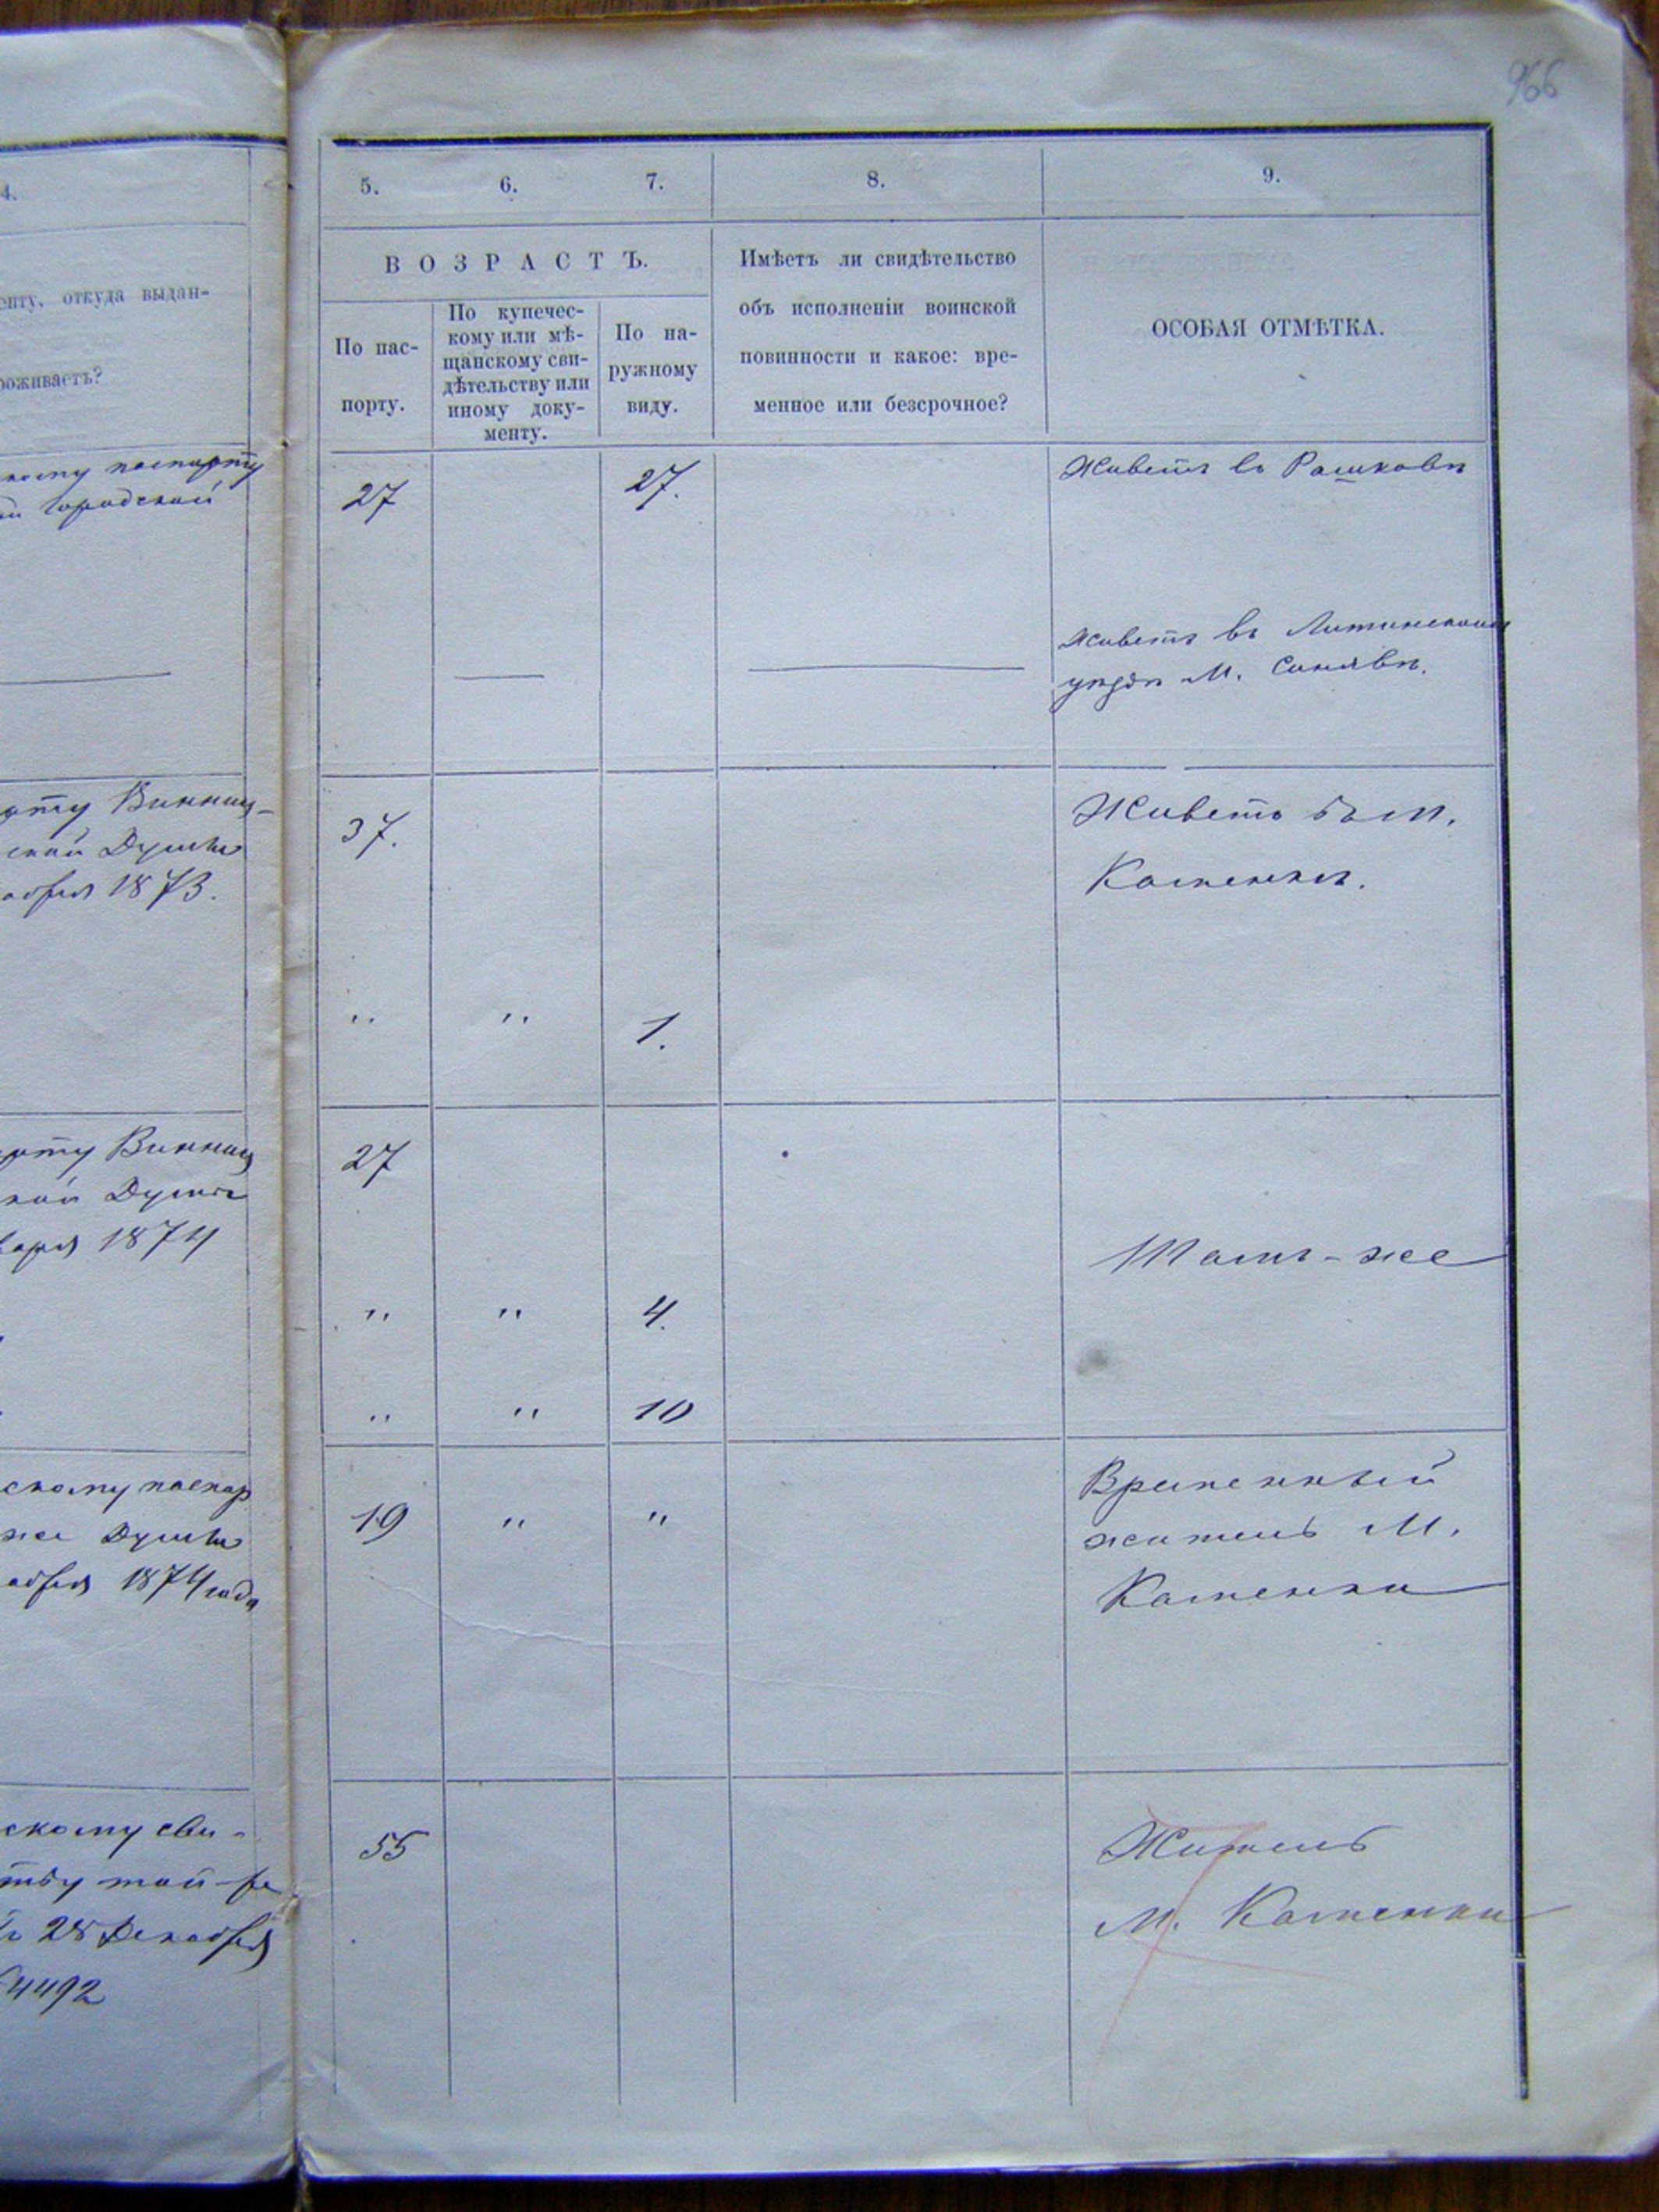 966
4.
енту, откуда выдан-
роживаетъ?
паспорту
Городской
Винниц-
ской Думы
1873.
Винниц
Думы
1874
скому паспор
же Думы
1874 года
скому сви-
28 Декабря
4492
5. 6. 7. 8. 9.
ВОЗРАСТЪ.
По пас-
порту.
По купечес-
кому или мѣ-
щанскому сви-
дѣтельству или
иному доку-
менту.
По на-
ружному
виду.
Имѣетъ ли свидѣтельство
объ исполненіи воинской
повинности и какое: вре-
менное или безсрочное?
ОСОБАЯ ОТМѢТКА.
27 27. Живетъ въ Рашковѣ
Живетъ въ Литинскомъ
уѣздѣ М. Синявѣ.
37. Живетъ въ м.
Каменкѣ.
" " 1.
27
Тамъ-же
" " 4.
" " 10
19 " " Временный
житель М.
Каменки
55 Житель
М. Каменки